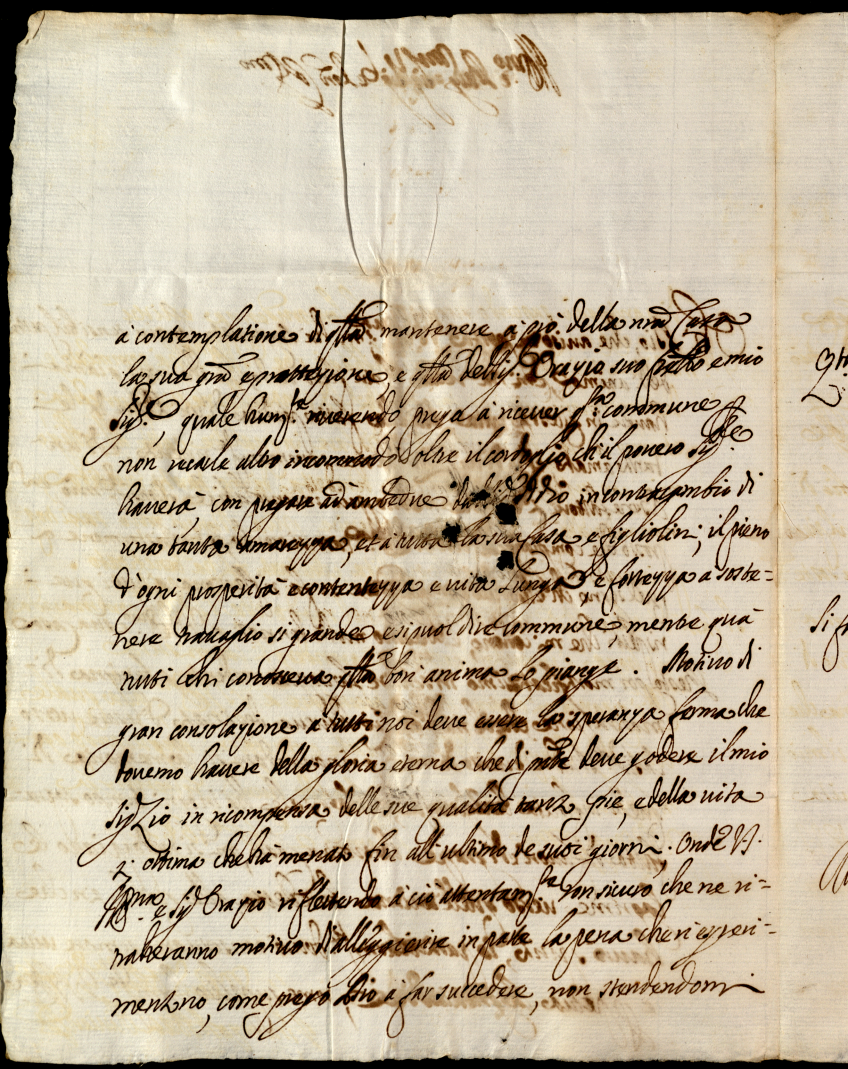 à contemplatione di q.ta mantenere à prò della nrã Casa
la sua grã e prottezione, e q.ta del Sig.r Orazio suo fratello e mio
Sig.re, quale hum.te riverendo prego à ricever q.to commune
non recarle altro incommodo oltre il cordoglio ch'il povero Sig.re
haverà, con pregare ad ambedue Iddio incontracambio di
una tanta amarezza, et à tutta la sua Casa e figliolini, il pieno
d'ogni prosperità e contentezza e vita lunga e fortezza a soste=
nere travaglio si grande e si puol dire commune, mentre quà
tutti chi conosceva q.ta bon' anima lo piange. Motivo di
gran consolazione à tutti noi deve essere la speranza ferma che
dovemo havere della gloria eterna che di pnte deve godere il mio
Sig.r Zio in ricompensa delle sue qualità tanto pie, e della vita
ottima che hà menato fin all'ultimo de suoi giorni, Onde V.S.
Ill.ma e Sig.r Orazio riflettendo à ciò attentam.te son sicuro, che ne ri=
traheranno motivo d'alleggierire in parte la pena che ri esperi=
mentano, come prego Dio à far succedere, non stendendomi
Si